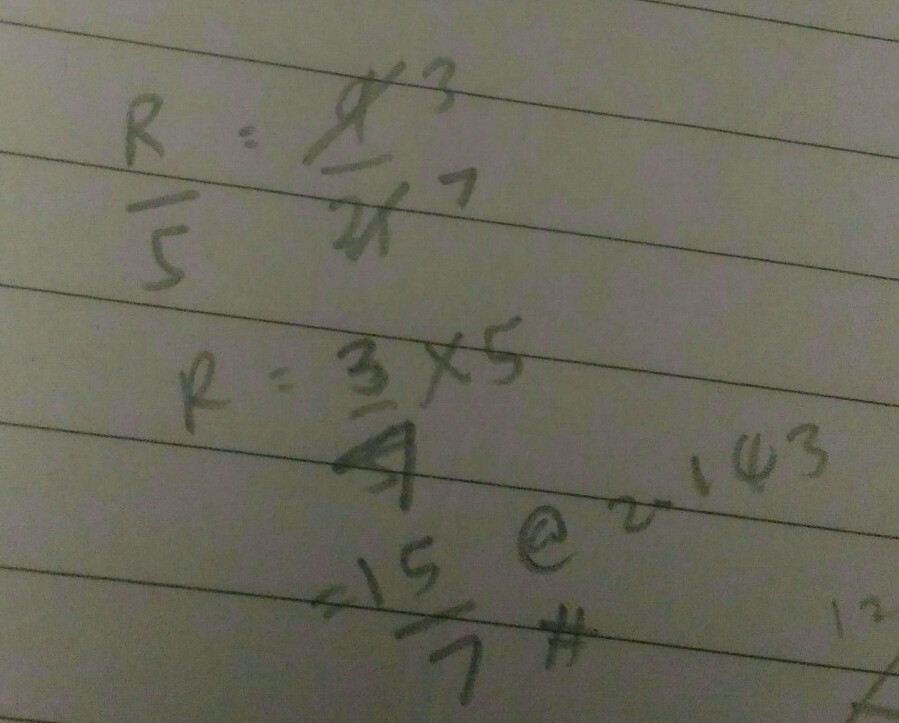 R/5 = 9/21 3/7
R = 3/7 × 5
= 15/7 @ 2.143 #
12